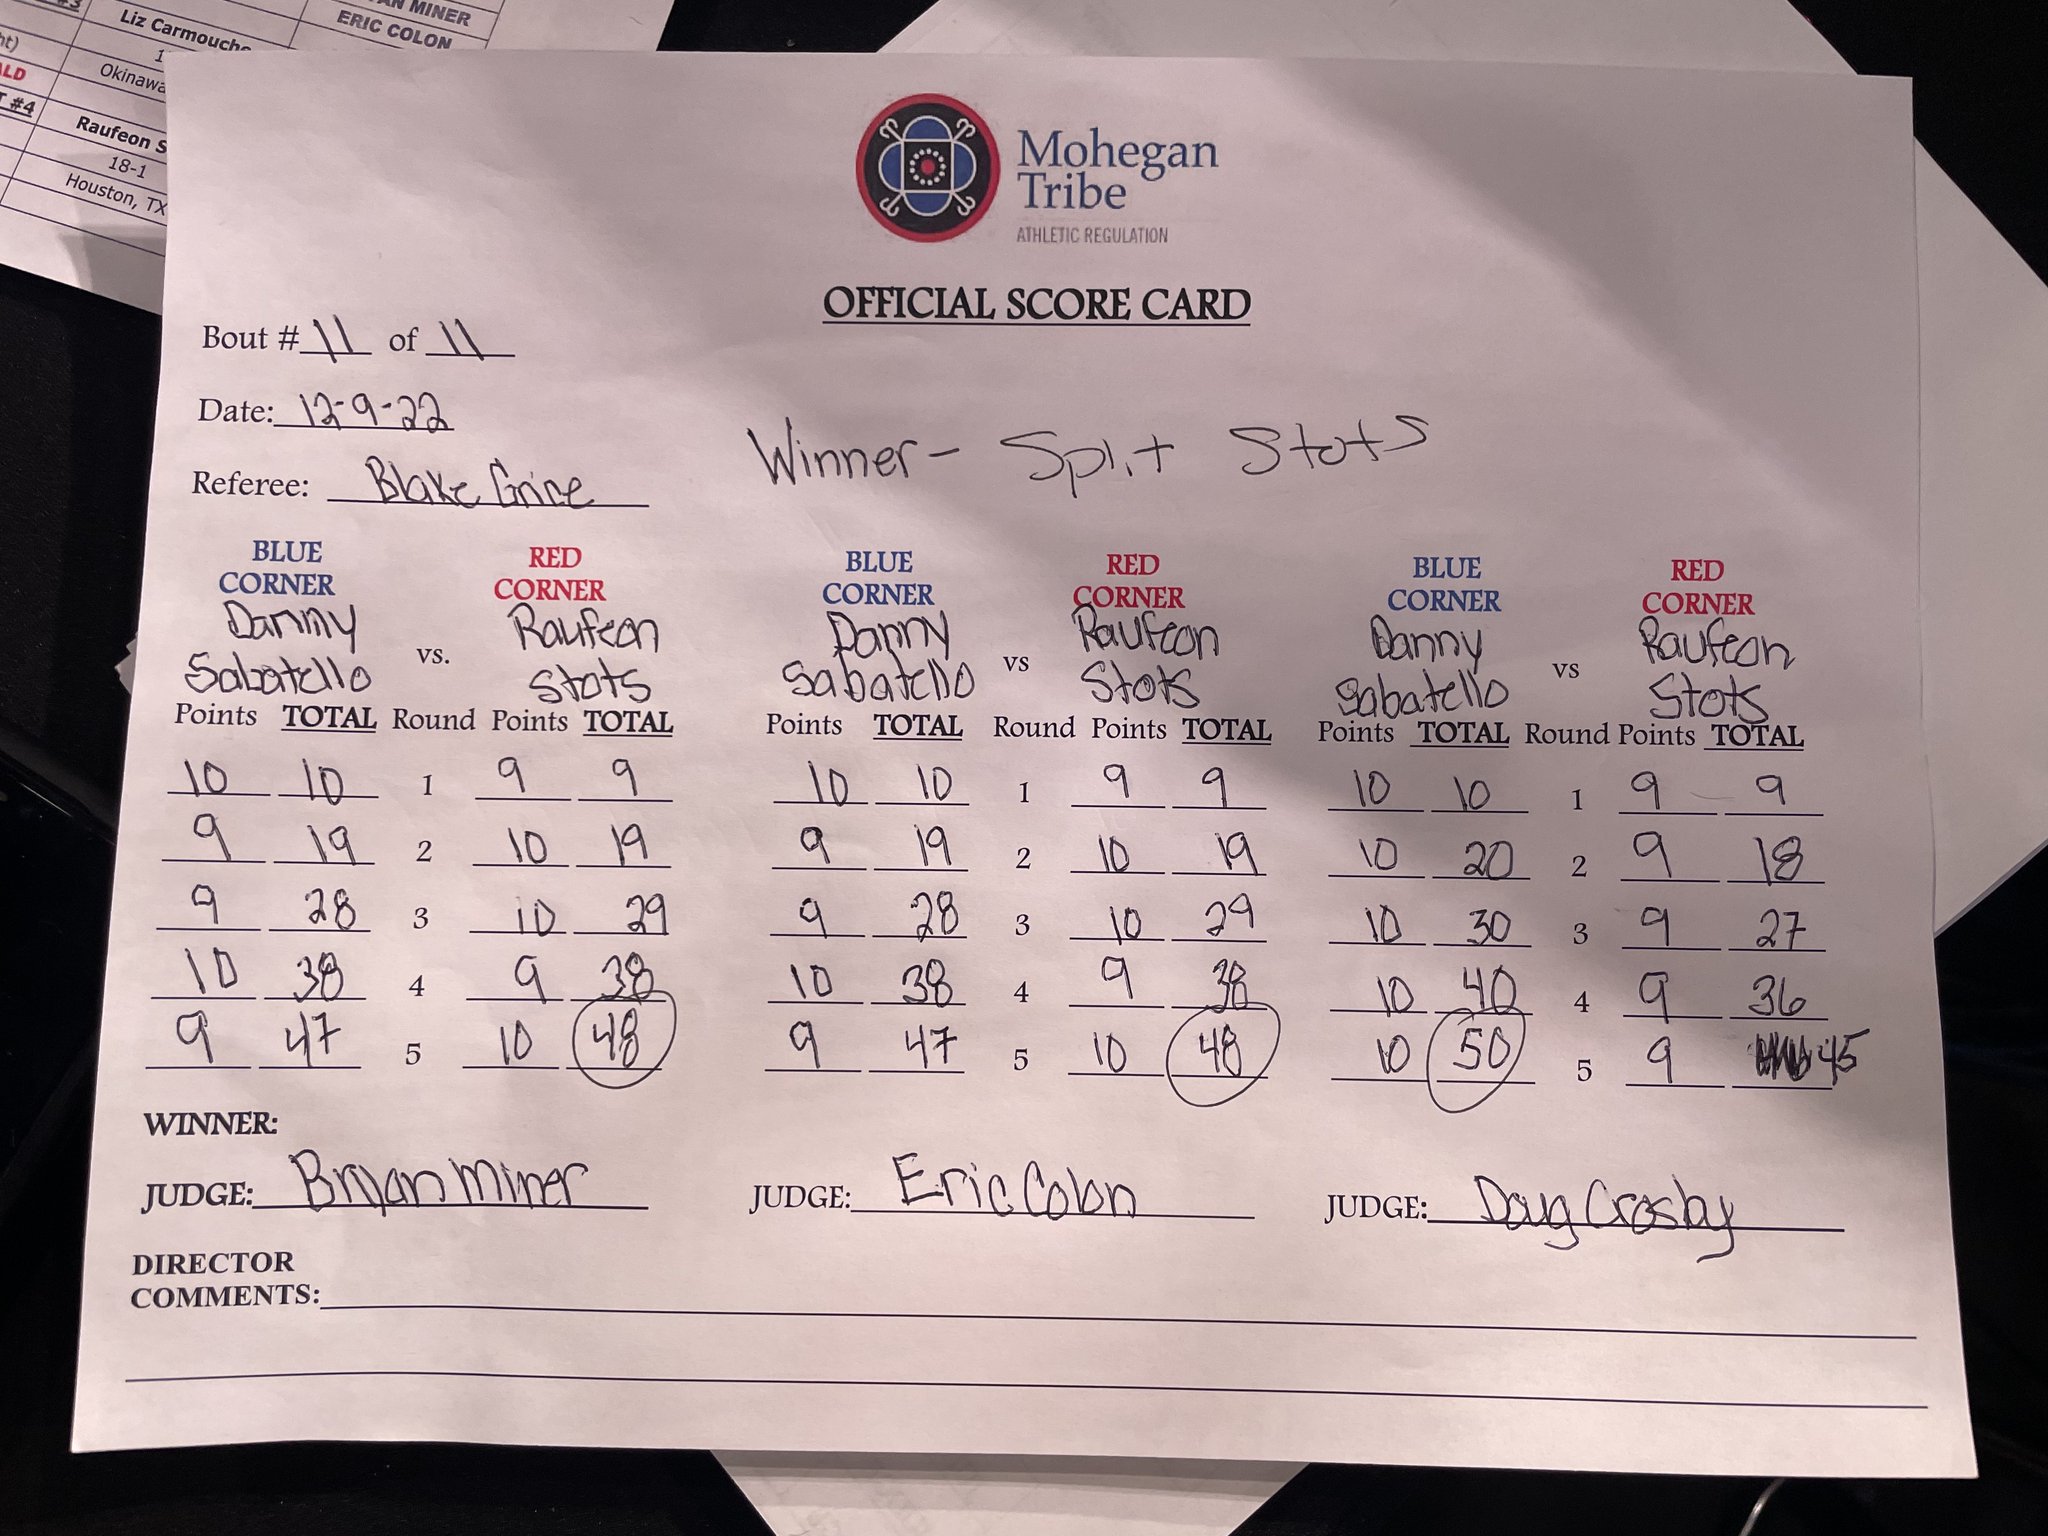 AN MINER
Liz Carmouche
ERIC COLON
Okinawa
#4
Raufeon S
18-1
Houston, TX
Mohegan
Tribe
ATHLETIC REGULATION
OFFICIAL SCORE CARD
Bout # 11 of 11
Date: 12-9-22
Winner - Split Stots
Referee: Blake Grice
BLUE CORNER RED CORNER BLUE CORNER RED CORNER BLUE CORNER RED CORNER
Danny Sabatello vs. Raufeon Stots Danny Sabatello vs Raufeon Stots Danny Sabatello vs Raufeon Stots
Points TOTAL Round Points TOTAL Points TOTAL Round Points TOTAL Points TOTAL Round Points TOTAL
10 10 1 9 9 10 10 1 9 9 10 10 1 9 9
9 19 2 10 19 9 19 2 10 19 10 20 2 9 18
9 28 3 10 29 9 28 3 10 29 10 30 3 9 27
10 38 4 9 38 10 38 4 9 38 10 40 4 9 36
9 47 5 10 48 9 47 5 10 48 10 50 5 9 45
WINNER:
JUDGE: Bryan Miner JUDGE: Eric Colon JUDGE: Doug Crosby
DIRECTOR
COMMENTS: